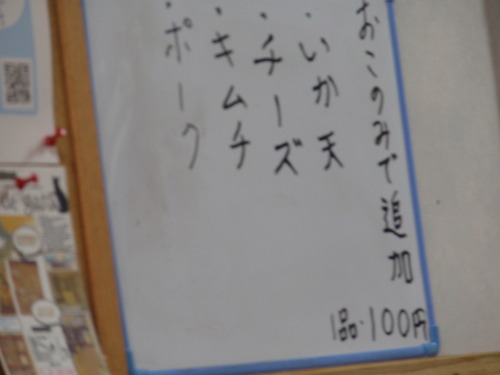 おこのみで追加
・いか天
・チーズ
・キムチ
・ポーク
1品・100円